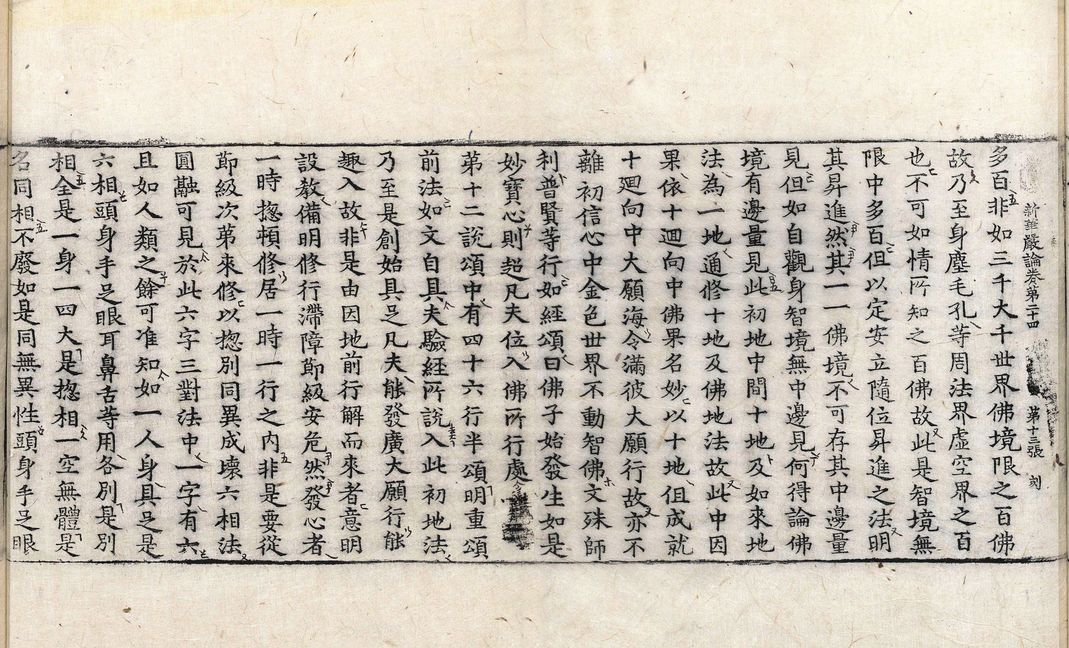 新華嚴論卷第二十四 第十三張 刻
多百非如三千大千世界佛境限之百佛
故乃至身塵毛孔等周法界虛空界之百
也不可如情所知之百佛故此是智境無
限中多百但以定安立隨位昇進之法明
其昇進然其一一佛境不可存其中邊量
見但如自觀身智境無中邊見何得論佛
境有邊量見此初地中間十地及如來地
法為一地通修十地及佛地法故此中因
果依十迴向中佛果名妙以十地但成就
十迴向中大願海令滿彼大願行故亦不
離初信心中金色世界不動智佛文殊師
利普賢等行如經頌曰佛子始發生如是
妙寶心則超凡夫位入佛所行處
第十二說頌中有四十六行半頌明重頌
前法如文自具夫驗經所說入此初地法
乃至是創始具足凡夫能發廣大願行能
趣入故非是由因地前行解而來者意明
設教備明修行滯障節級安危然發心者
一時揔頓修居一時一行之內非是要從
節級次第來修以揔別同異成壞六相法
圓融可見於此六字三對法中一字有六
且如人類之餘可准知如一人身具足是
六相頭身手足眼耳鼻舌等用各別是別
相全是一身一四大是揔相一空無體是
名同相不廢如是同無異性頭身手足眼